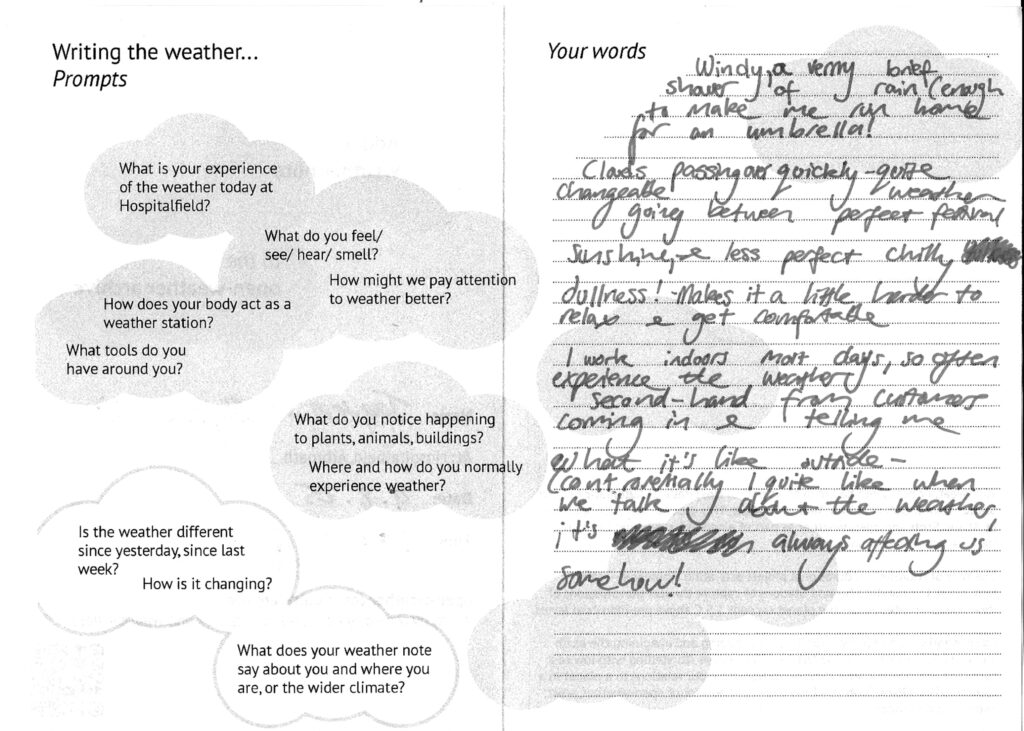 Writing the weather...
Prompts
What is your experience
of the weather today at
Hospitalfield?
What do you feel/
see/ hear/ smell?
How might we pay attention
to weather better?
How does your body act as a
weather station?
What tools do you
have around you?
What do you notice happening
to plants, animals, buildings?
Where and how do you normally
experience weather?
Is the weather different
since yesterday, since last
week?
How is it changing?
What does your weather note
say about you and where you
are, or the wider climate?
Your words
Windy, a very brief
shower of rain (enough
to make me run home
for an umbrella!
Clouds passing over quickly - quite
changeable weather
going between perfect festival
sunshine, & less perfect chilly
dullness! Makes it a little harder to
relax & get comfortable
I work indoors most days, so often
experience the weather
second-hand from customers
coming in & telling me
what it's like outside -
I quite like when
we talk about the weather,
it's always affecting us
somehow!